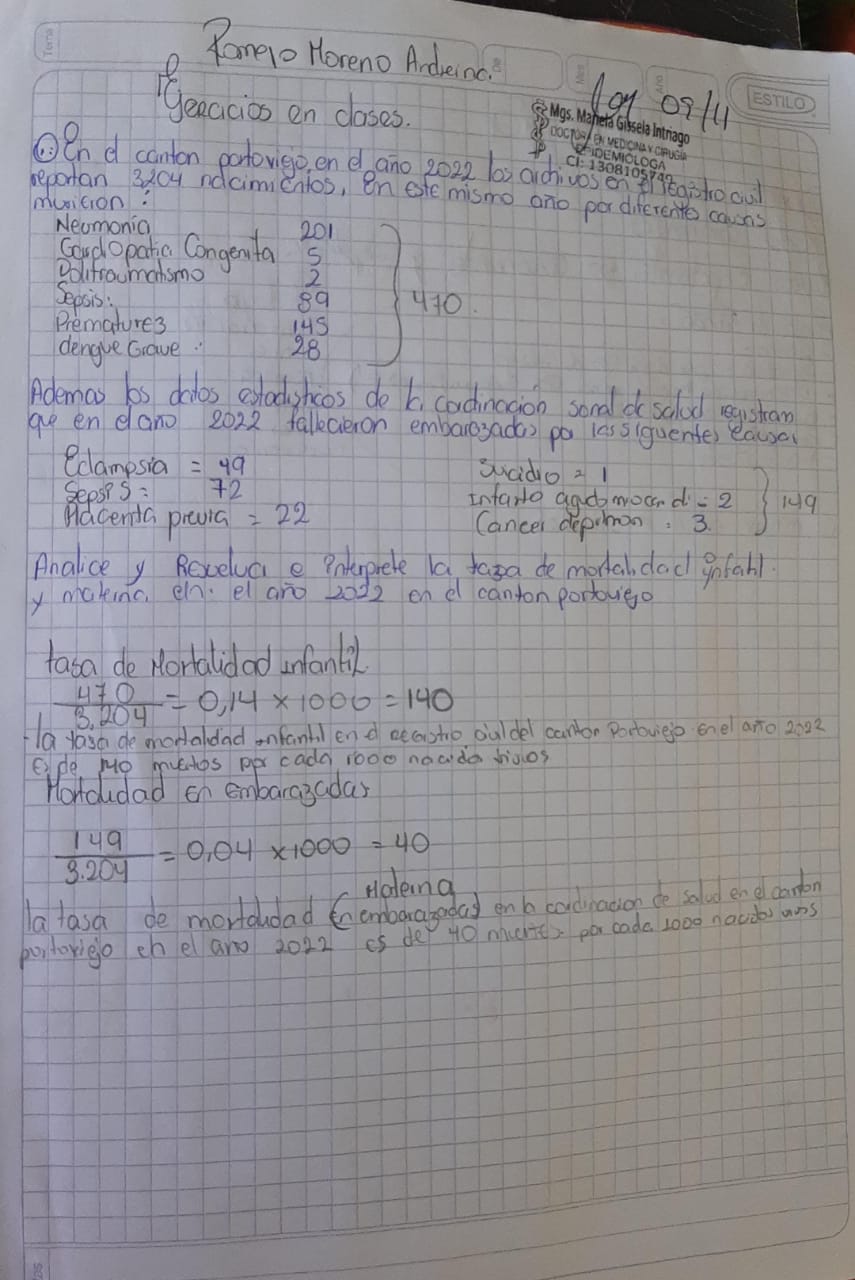 Tema
De
Mes
Año
ESTILO
Romero Moreno Andreina.
09/11
Mgs. Mariela Gissela Intriago
DOCTORA EN MEDICINA Y CIRUGIA
EPIDEMIOLOGA
CI: 1308105740
Ejercicios en clases.
En el canton portoviejo, en el año 2022 los archivos en el registro civil
reportan 3,204 nacimientos, en este mismo año por diferentes causas
murieron:
Neumonía 201
Cardiopatia Congenita 5
Politraumatismo 2
Sepsis: 89
Prematurez 145
dengue Grave: 28
470.
Ademas los datos estadisticos de la cordinacion sonal de salud registran
que en el año 2022 fallecieron embarazadas por las siguentes causas
Eclampsia = 49
Sepsis = 72
Placenta previa = 22
Suicidio = 1
Infarto agudo miocardi = 2
Cancer de pulmon = 3.
149
Analice y Resuelva e interprete la tasa de mortalidad infantil
y materna en: el año 2022 en el canton portoviejo
tasa de Mortalidad infantil
470
3.204 = 0,14 x 1000 = 140
-la tasa de mortalidad infantil en el registro civil del canton Portoviejo en el año 2022
es de 140 muertos por cada 1000 nacido vivos
Mortalidad en embarazadas
149
3.204 = 0,04 x1000 = 40
Materna
la tasa de mortalidad (en embarazadas) en la cordinacion de salud en el canton
portoviejo en el año 2022 es de 40 muertes por cada 1000 nacidos vivos